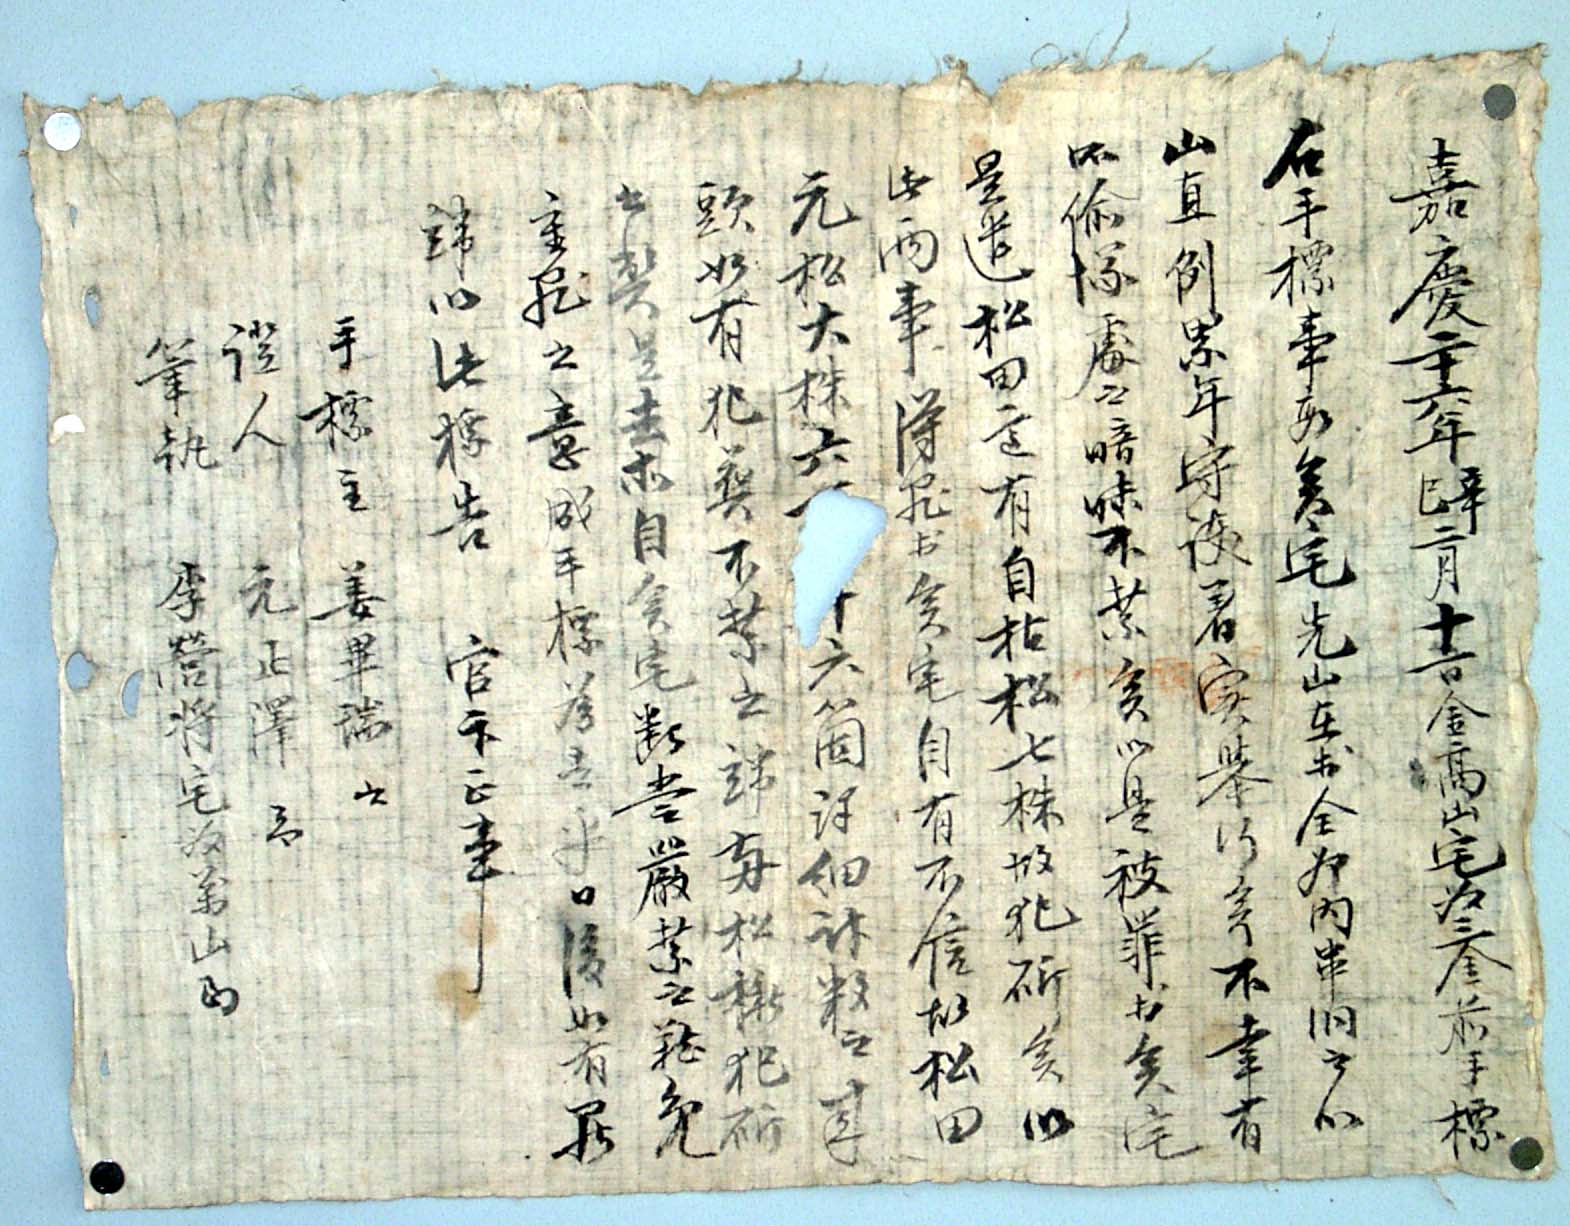 嘉慶二十六年辛巳二月十一日金高山宅奴三金前手標
右手標事段矣宅先山在於全州內串洞之以
山直例累年守護着實擧行矣不幸有
偸塚處之暗昧不禁矣以是被罪於矣宅
是遣松田段有自枯松七株故犯斫矣以
此兩事得罪於矣宅自有不信故松田
元松大株六 十六箇詳細計數之事
頭如有犯葬不禁之弊與松楸犯斫
之弊是去乃自矣宅斷當嚴禁之難免
重罪之意成手標爲去乎日後如有罪
弊以此標告 官卞正事
手標主 姜畢瑞
證人 元正澤
筆執 李營將宅奴萬山